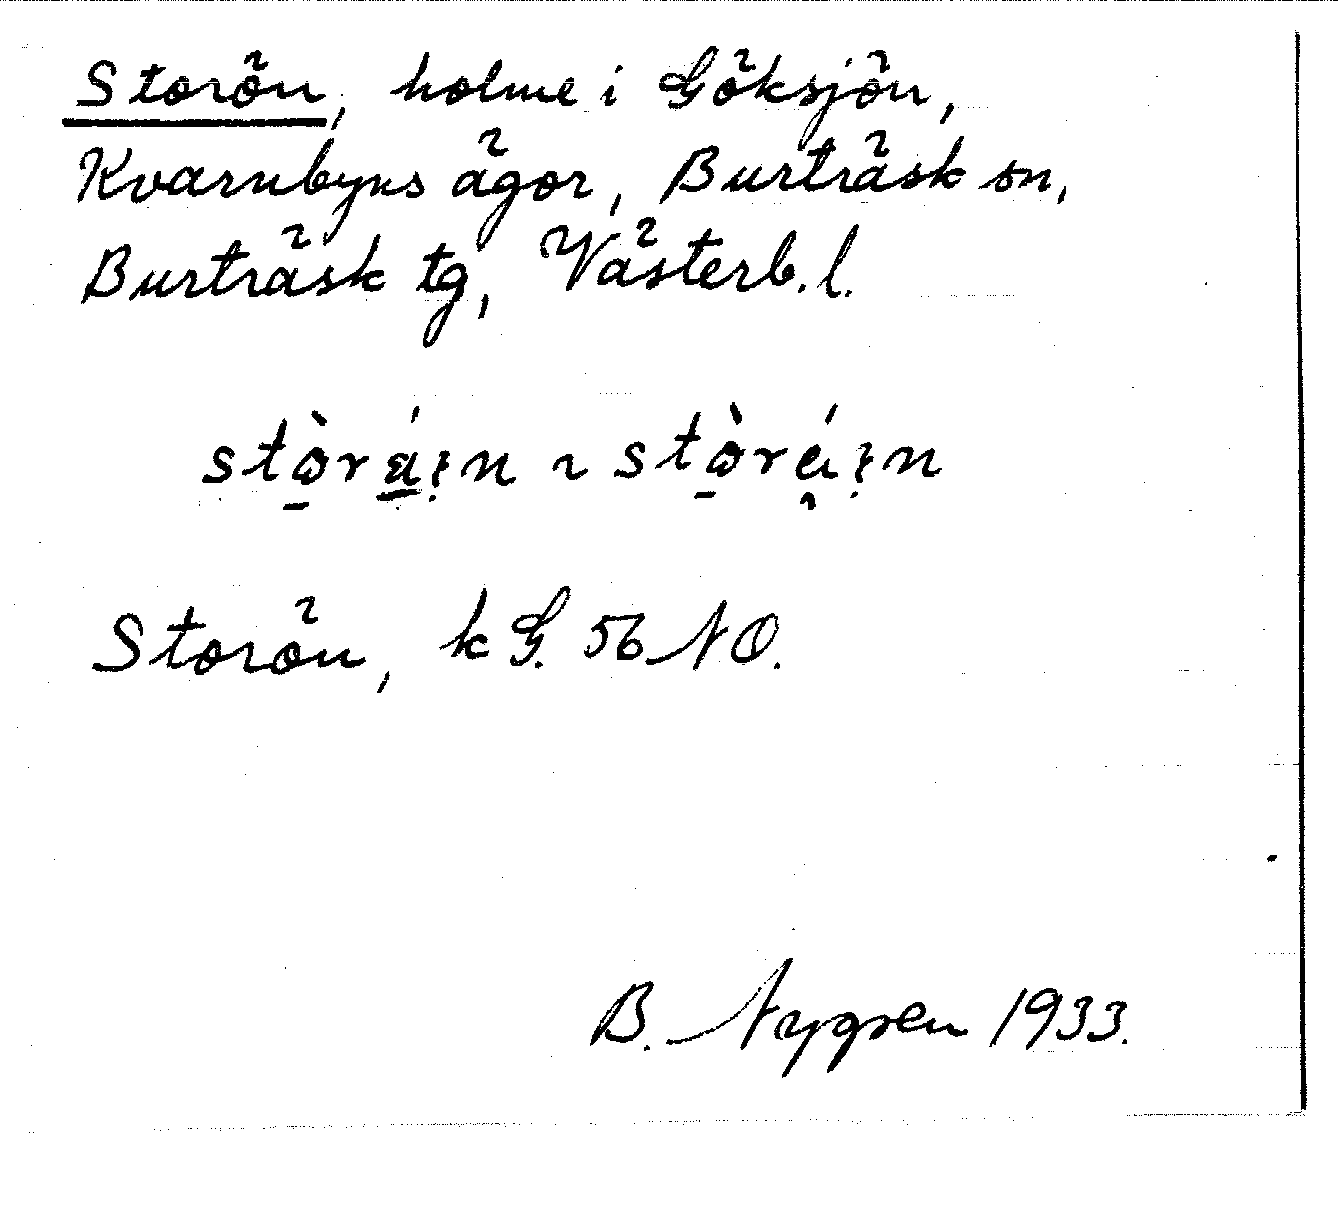 Storön, holme i Göksjön,
Kvarnbyns ägor, Burträsk sn,
Burträsk tg, Västerb. l.
Storön, k G. 56 NO.
B. Nygren 1933.